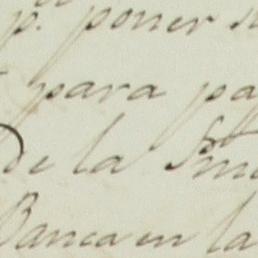 p. poner
para pa
de la
Banca en la